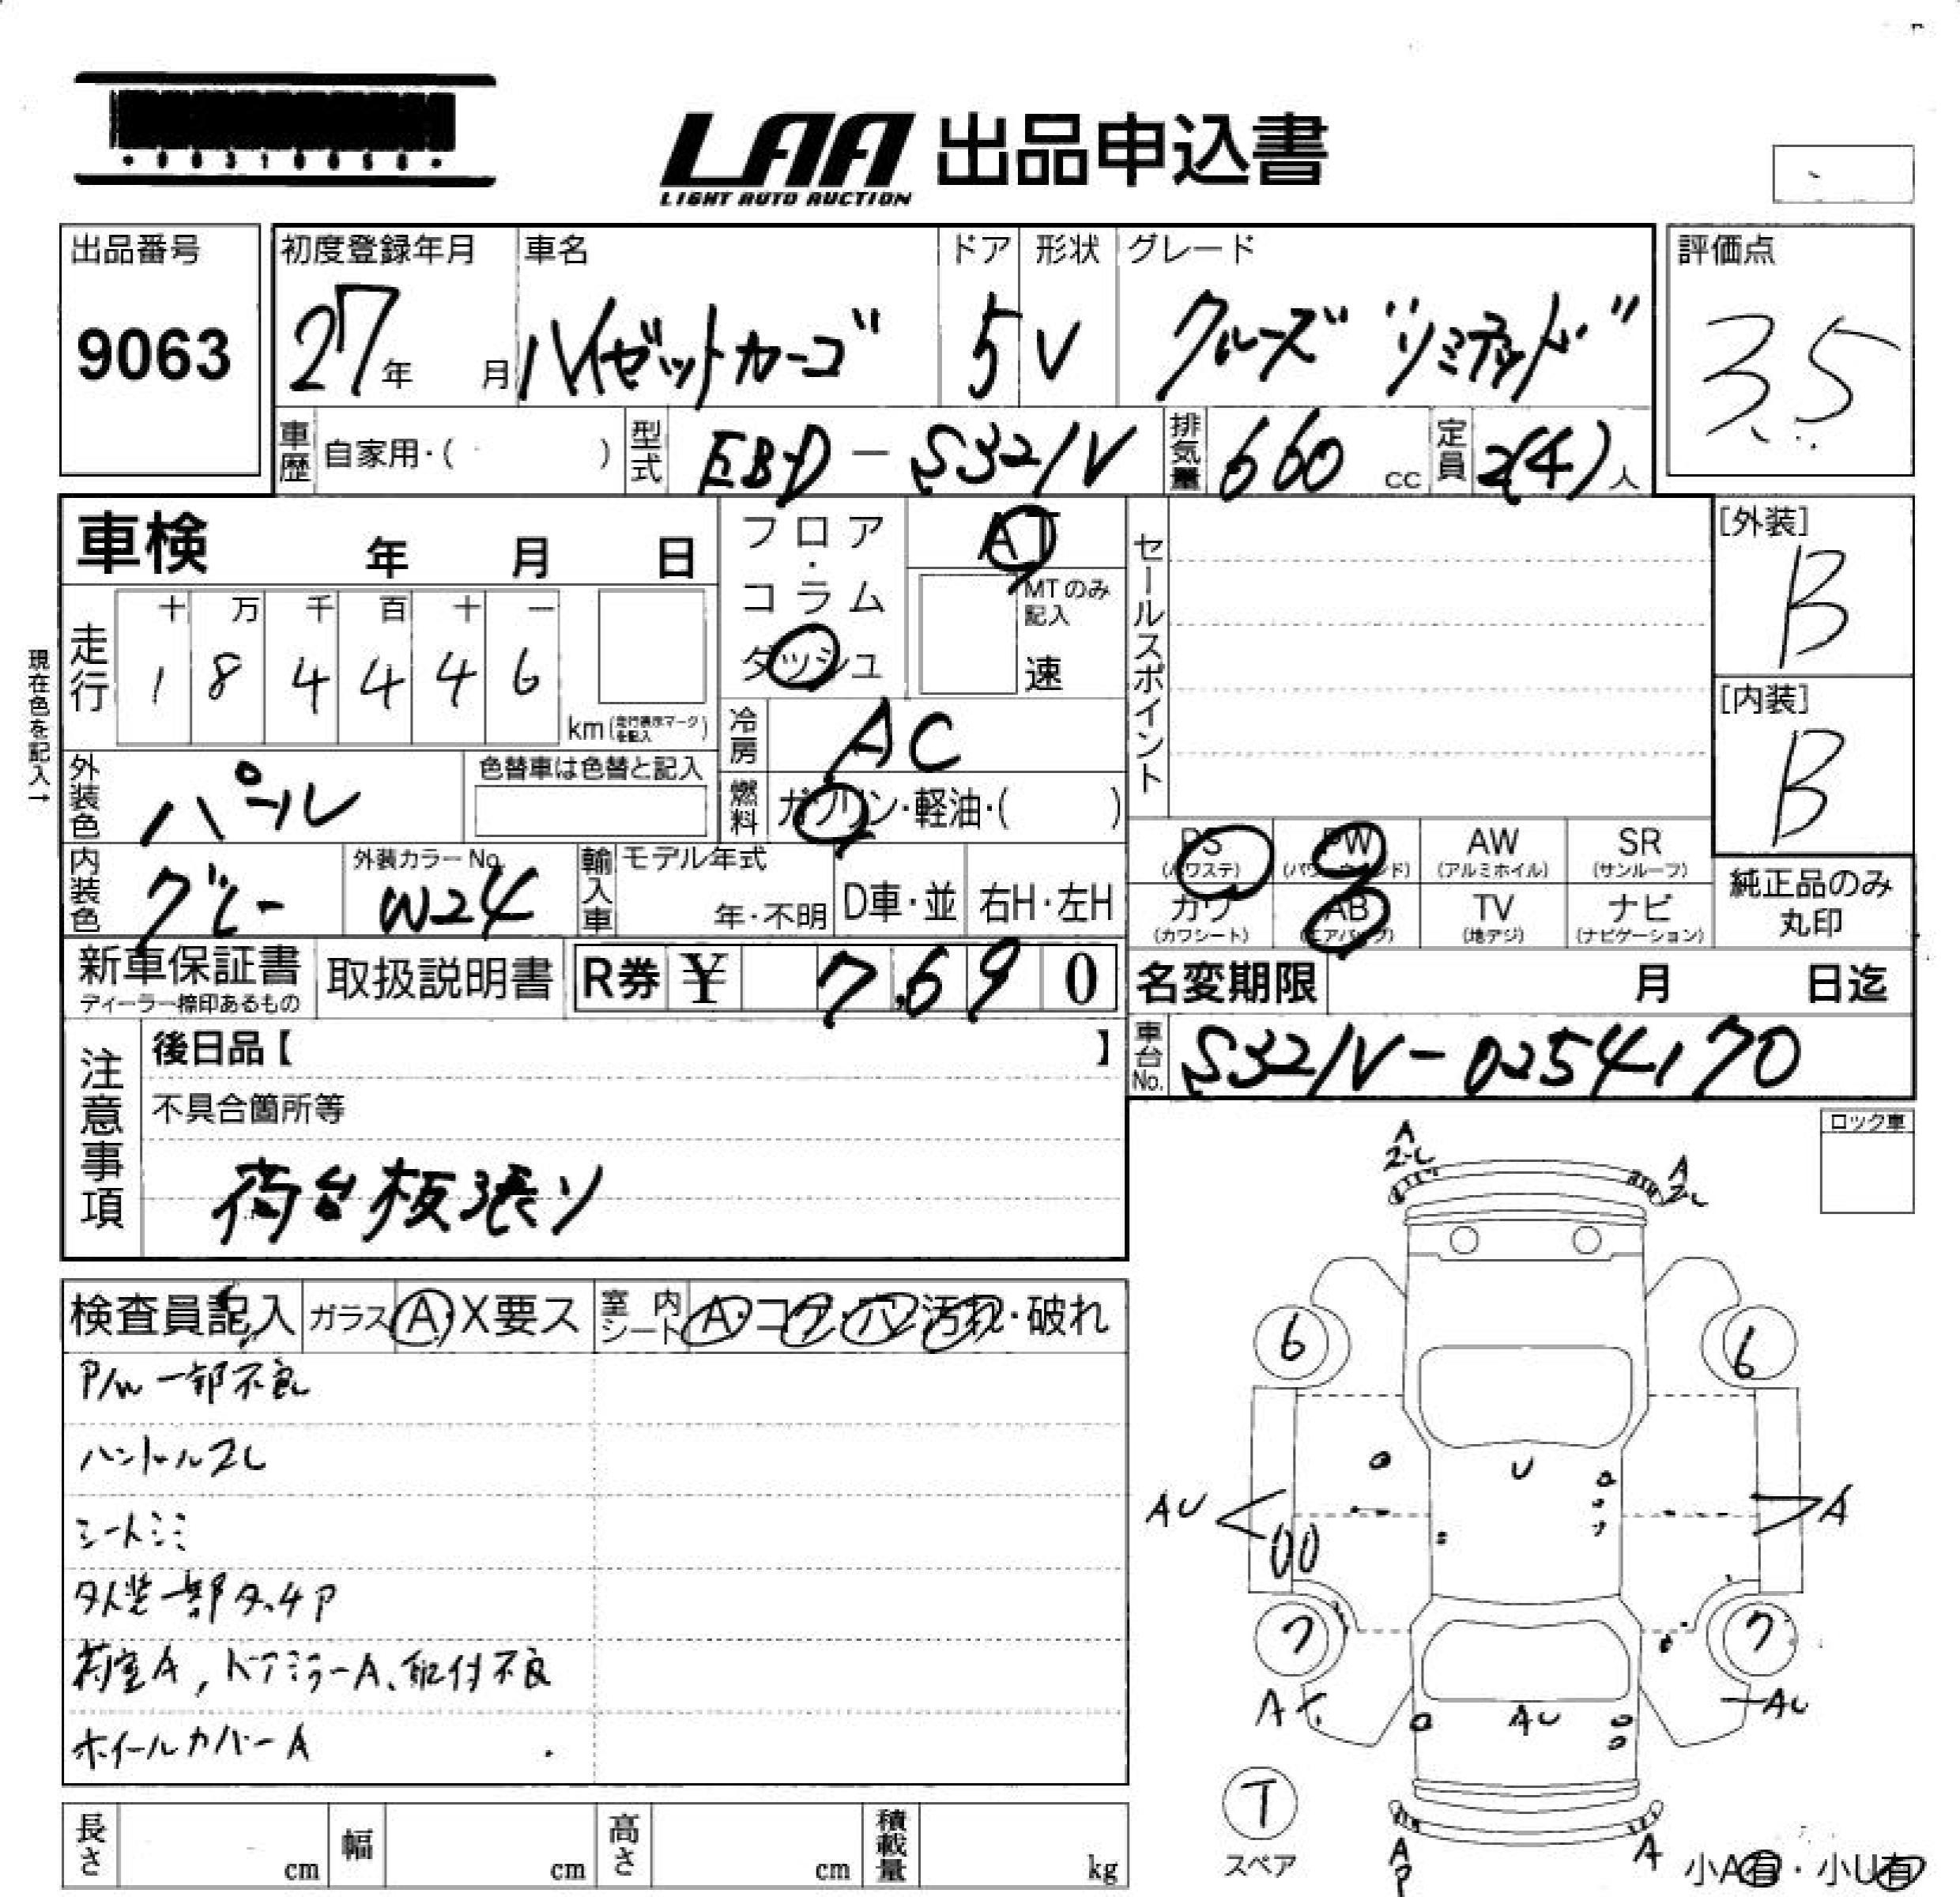 LAA 出品申込書
LIGHT AUTO AUCTION
出品番号
9063
初度登録年月
27年 月
車名
ハイゼットカーゴ
ドア
5
形状
V
グレード
クルーズ "リミテッド"
評価点
3.5
車歴 自家用・( )
型式 EBD-S321V
排気量 660 cc
定員 2(4)人
車検 年 月 日
フロア・コラム
ダッシュ
AT
MTのみ記入
速
セールスポイント
[外装]
B
[内装]
B
現在色を記入→
走行
十 万 千 百 十 一
1 8 4 4 4 6
km (走行表示マークを記入)
冷房 AC
燃料 ガソリン・軽油・( )
外装色 パール
色替車は色替と記入
内装色 グレー
外装カラーNo. W24
輸入車 モデル年式
年・不明 D車・並 右H・左H
PS (パワステ)
PW (パワーウインド)
AW (アルミホイル)
SR (サンルーフ)
カワ (カワシート)
AB (エアバッグ)
TV (地デジ)
ナビ (ナビゲーション)
純正品のみ
丸印
新車保証書
ディーラー捺印あるもの
取扱説明書
R券 ¥ 7,690
名変期限 月 日迄
車台No. S321V-0254170
注意事項
後日品【 】
不具合箇所等
荷台板張り
ロック車
検査員記入 ガラス A・X要ス 室内シート A・コゲ・穴・汚れ・破れ
P/W一部不良
ハンドルスレ
シートシミ
外装一部タッチP
荷室A, ドアミラーA、取付不良
ホイールカバーA
A
スレ
A
スレ
6
6
U
AU
A
7
7
A
AU
AU
T
スペア
A
P
A
小A有・小U有
長さ cm
幅 cm
高さ cm
積載量 kg